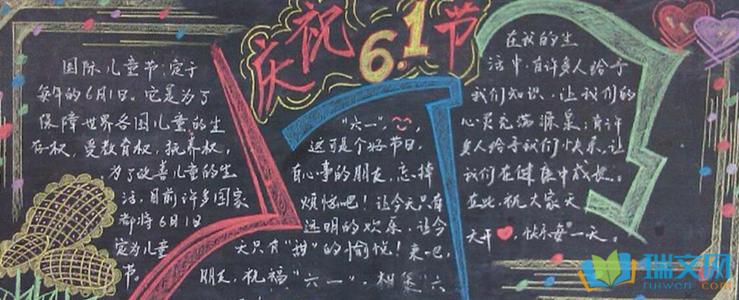 庆祝6.1节
国际儿童节,定于
每年的6月1日。它是为了
保障世界各国儿童的生
存权,受教育权,抚养权,
为了改善儿童的生
活,目前许多国家
都将6月1日
定为儿童
节。
"六一",
这可是个好节日,
有心事的朋友,忘掉
烦恼吧!让今天只有
透明的欢乐,让今
天只有"甜"的愉悦!来吧,
朋友,祝福"六一",相聚六
在我的生
活中,有许多人给予
我们知识,让我们的
心灵充满源泉;有许
多人给予我们快乐,让
我们在健康中成长。
在此,祝大家天
天开❤,快乐每一天。
瑞文网